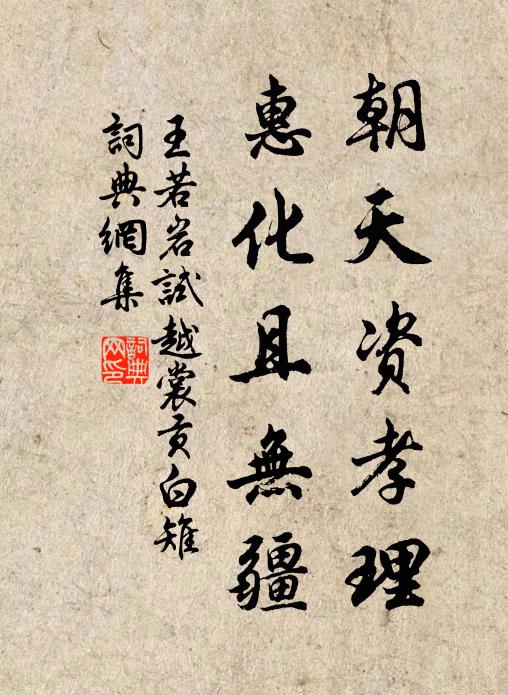 朝天资孝理
惠化且無疆
王若岩試越裳貢白雉
詞典網集
詞典网印